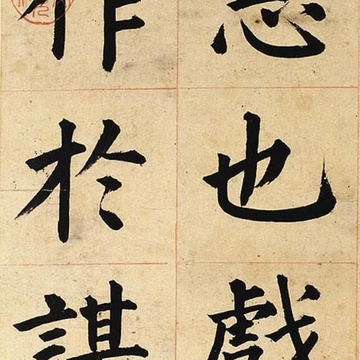 思也戲
作於謀